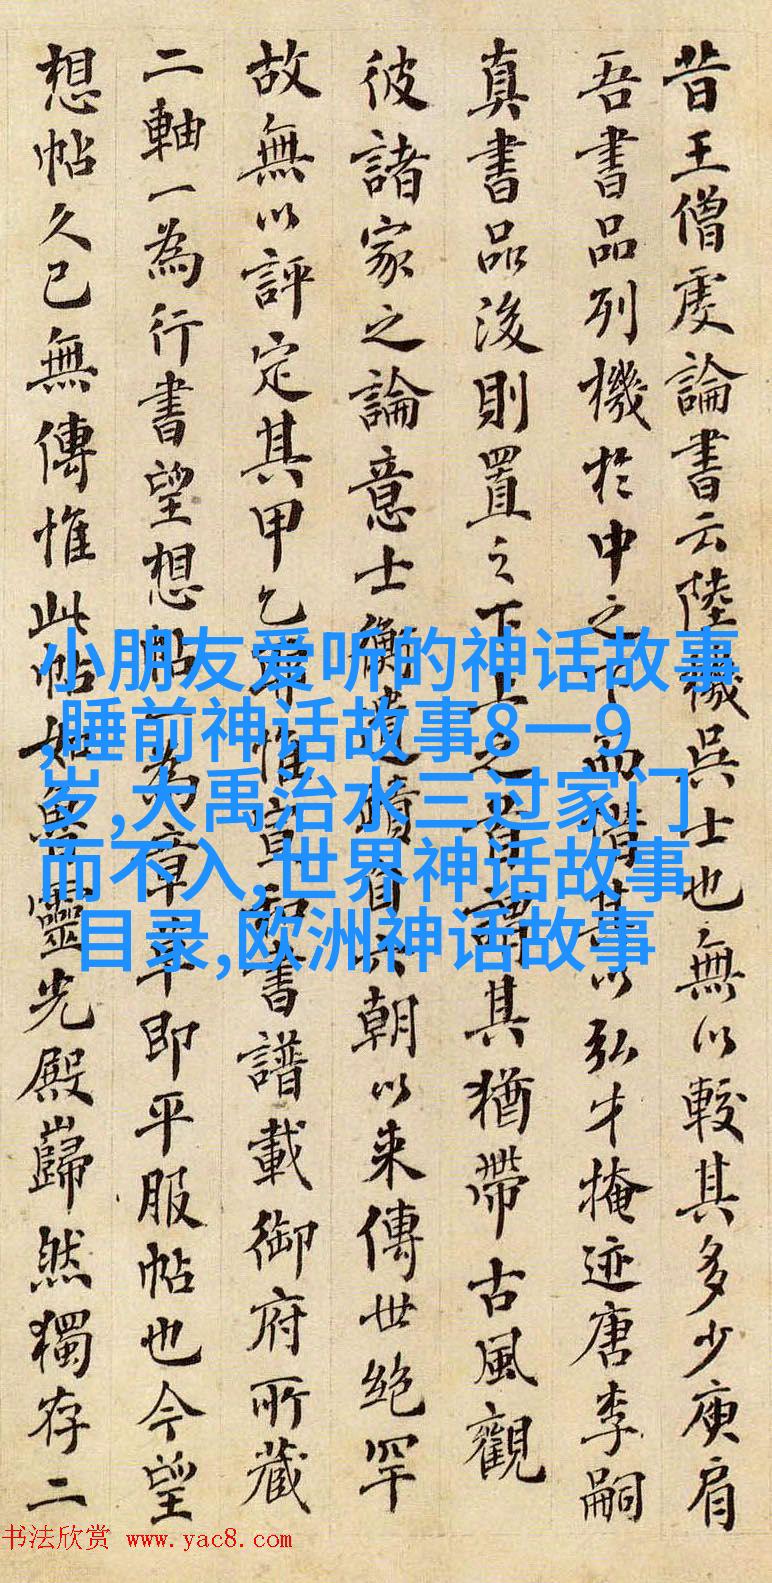 昔王僧虔論書云陸機吳士也無以較其多少庾肩
吾書品列機於中之下而惜其以弘才掩迹唐李嗣
真書品後則置之下上之首謂其猶帶古風觀
彼諸家之論意士衡遺蹟自六朝以來傳世絶罕
故無以評定其甲乙耳惟宣和書譜載御府所藏
二軸一為行書望想帖一為章草即平服帖也今望
想帖久已無傳惟此帖如魯靈光殿巋然獨存二
小朋友爱听的神话故事
,睡前神话故事8一9
岁,大禹治水三过家门
而不入,世界神话故事
目录,欧洲神话故事
书法欣赏 www.yac8.com